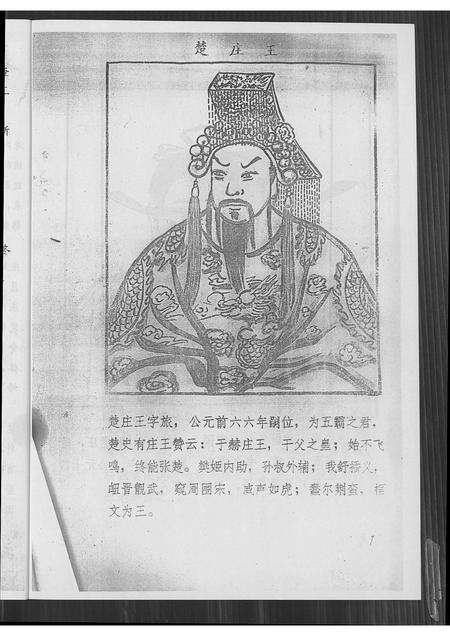 楚庄王
楚庄王字旅，公元前六六年嗣位，为五霸之君。
楚史有庄王赞云：于赫庄王，干父之皇；始不飞
鸣，终能张楚。樊姬内助，孙叔外辅；戮舒
晋觀武，窥周圍宋，威声如虎；蠢尔荆蛮，
文为王。
1